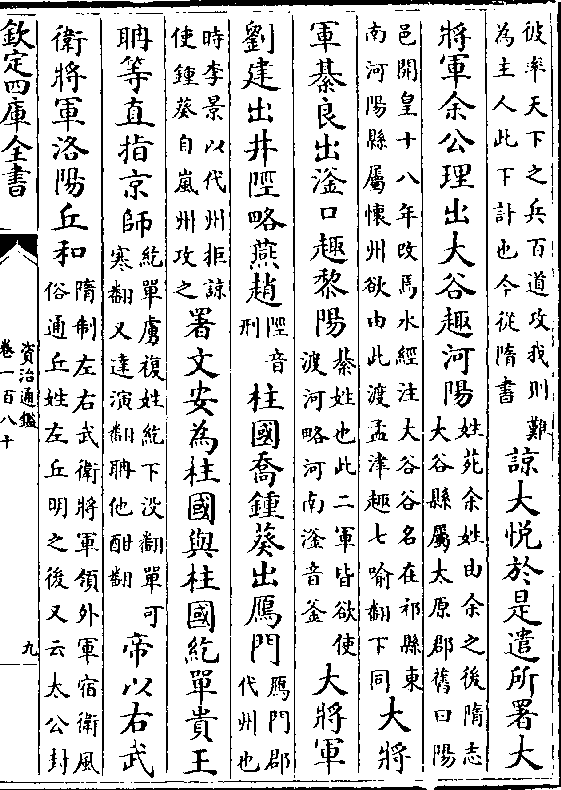 彼率天下之兵百道攻我則難為主人此下計也今從隋書諒大悅於是遣所署大
將軍余公理出大谷趣河陽姓苑余姓由余之後隋志大谷縣屬太原郡舊曰陽
邑開皇十八年改焉水經注大谷谷名在祁縣東南河陽縣屬懷州欲由此渡孟津趣七喻翻下同大將
軍綦良出滏口趣黎陽綦姓也此二軍皆欲使渡河略河南滏音釜大將軍
劉建出井陘略燕趙陘音刑柱國喬鍾葵出鴈門鴈門郡代州也
時李景以代州拒諒使鍾葵自嵐州攻之署文安為柱國與柱國紇單貴王
聃等直指京師紇單虜複姓紇下没翻單可寒翻又達演翻聃他酣翻帝以右武
衛將軍洛陽丘和隋制左右武衛將軍領外軍宿衛風俗通丘姓左丘明之後又云太公封
欽定四庫全書
資治通鑑
卷一百八十
九